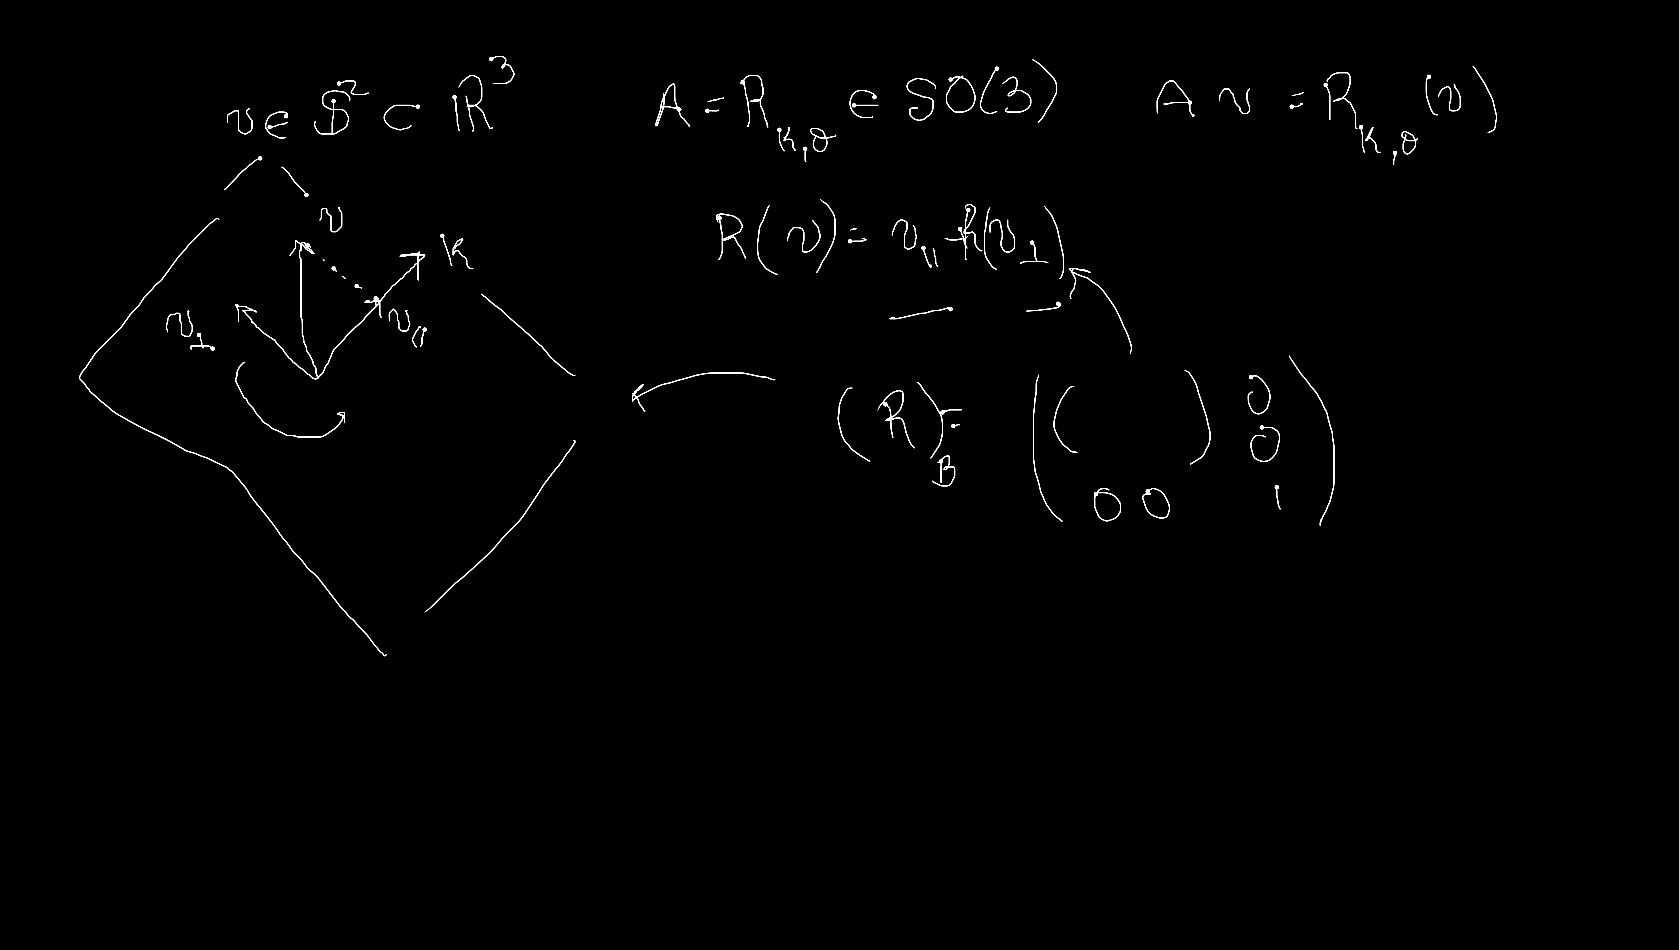 v ∈ 𝕊² ⊂ ℝ³ A = R_{k,θ} ∈ SO(3) A v = R_{k,θ}(v)
R(v) = v_∥ + R(v_⊥)
v
k
v_⊥ v_∥
(R)_B = ( ( ) 0
0
0 0 1 )